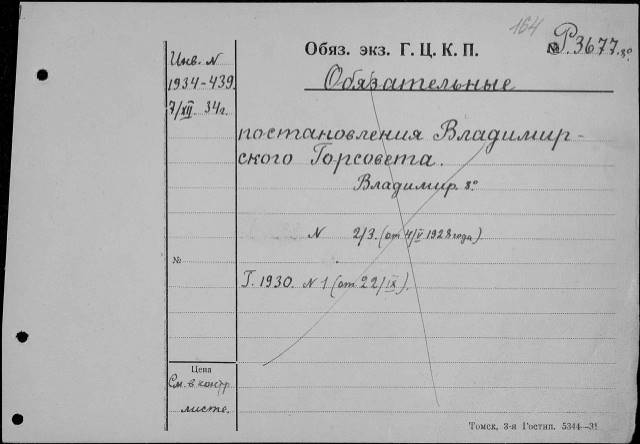 164
Обяз. экз. Г. Ц. К. П.
№ Р.3677. 8º
Инв. N
1934-439
7/XII 34г.
Обязательные
постановления Владимир-
ского Горсовета.
Владимир. 8º
N 2/3. (от 4/V 1928 года).
№
Г. 1930. N 1 (от 22/IX).
Цена
См. в контр.
листе.
Томск, 3-я Гостип. 5344—31